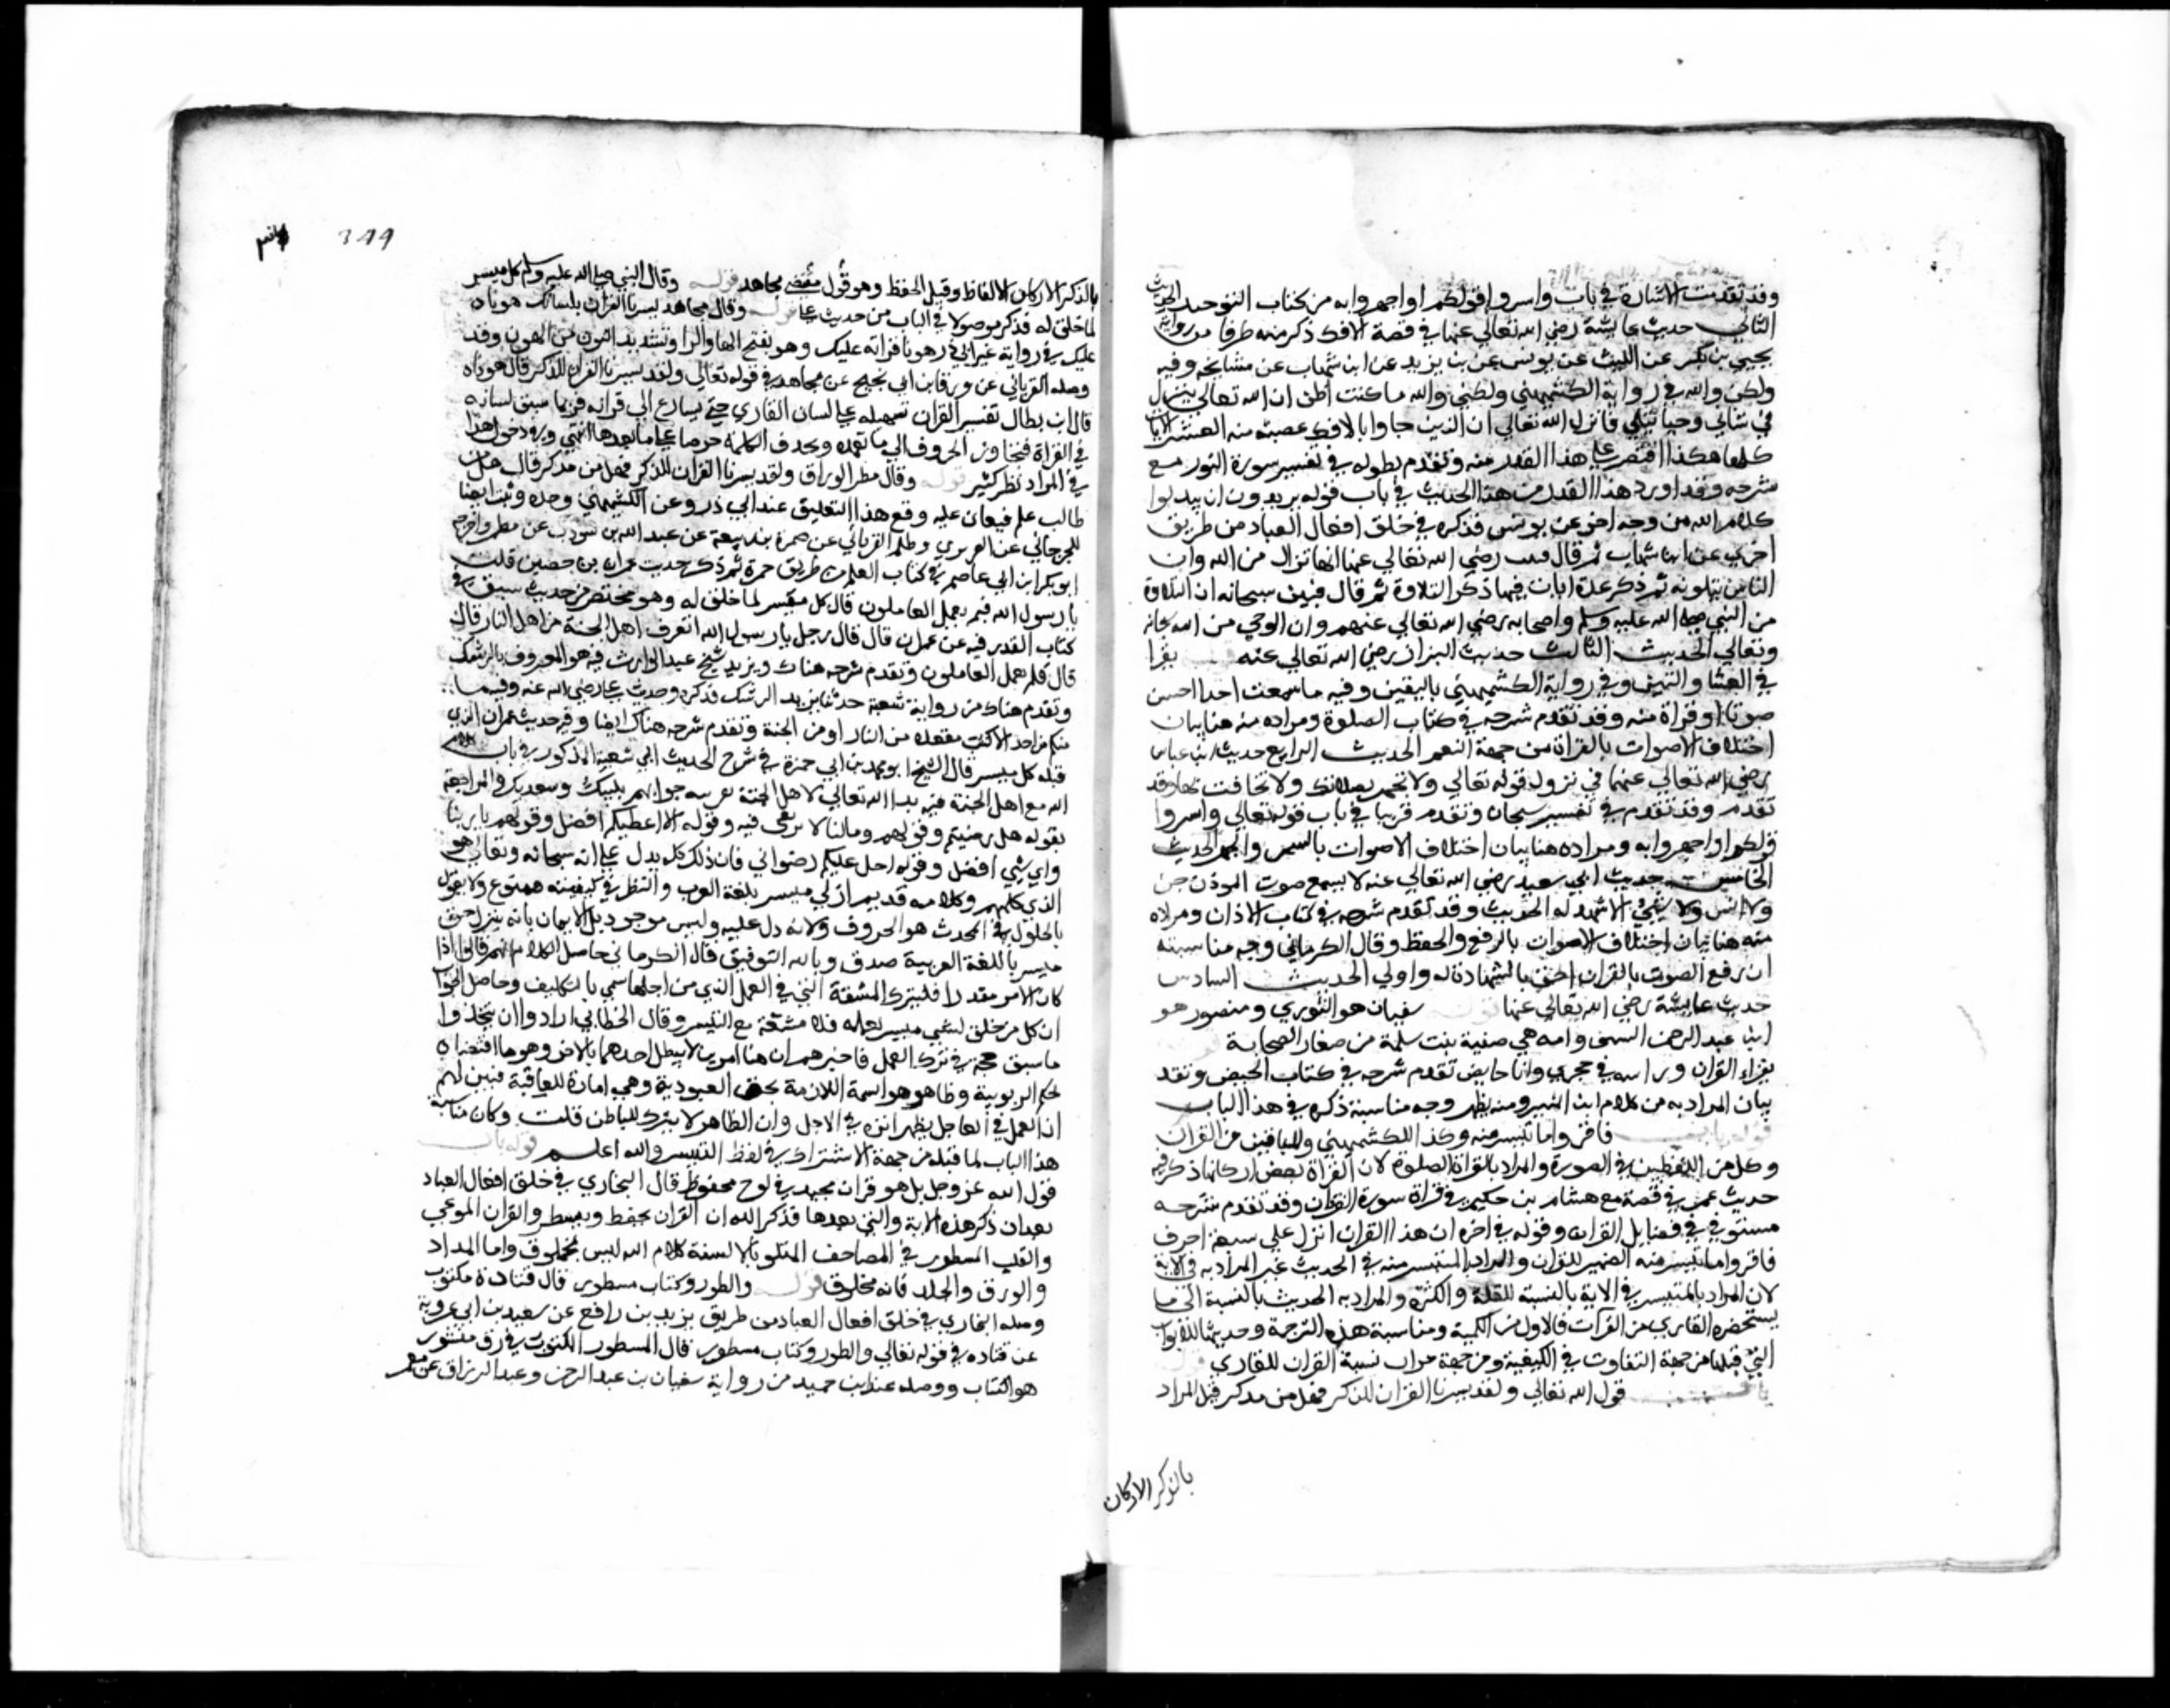 وقد تقدمت الاشارة في باب واسروا قولكم او اجهروا به من كتاب التوحيد الحديث
الثاني حديث عايشة رضي الله تعالي عنها في قصة الافك ذكر منه طرفا من رواية
يحيي بن بكير عن الليث عن يونس عن بن يزيد عن ابن شهاب عن مشايخه وفيه
ولكن والله في رواية الكشميهني ولكني والله ما كنت اظن ان الله تعالي ينزل
في شاني وحيا يتلي فانزل الله تعالي ان الذين جاوا بالافك عصبة منه العشر الايات
كلها هكذا اقتصر علي هذا القدر منه وتقدم بطوله في تفسير سورة النور مع
شرحه وقد اورد هذا القدر من هذا الحديث في باب قوله يريدون ان يبدلوا
كلام الله من وجه اخر عن يونس فذكره في خلق افعال العباد من طريق
اخري عن ابن شهاب ثم قال رضي الله تعالي عنها انها نزل من الله وان
الناس يتلونه ثم ذكر عدة ايات فيها ذكر التلاوة ثم قال فبين سبحانه ان التلاوة
من النبي صلي الله عليه وسلم واصحابه رضي الله تعالي عنهم وان الوحي من الله
وتعالي الحديث الثالث حديث البراز رضي الله تعالي عنه يقرا
في العشا والتين وفي رواية الكشميهني باليقين وفيه ما سمعت احدا احسن
صوتا او قراة منه وقد تقدم شرحه في كتاب الصلوة ومراده منه هنا بيان
اختلاف الاصوات بالقراة من جهة النغم الحديث الرابع حديث ابن عباس
رضي الله تعالي عنهما في نزول قوله تعالي ولا تجهر بصلاتك ولا تخافت بها وقد
تقدم وقد تقدم في تفسير سبحان وتقدم قريبا في باب قوله تعالي واسروا
قولكم او اجهروا به ومراده هنا بيان اختلاف الاصوات بالسر والجهر الحديث
الخامس حديث ابي سعيد رضي الله تعالي عنه لا يسمع صوت الموذن جن
ولا انس ولا شيئ الا شهد له الحديث وقد تقدم شرحه في كتاب الاذان ومراده
منه هنا بيان اختلاف الاصوات بالرفع والحفظ وقال الكرماني وجه مناسبته
ان رفع الصوت بالقران احق بالشهادة له واولي الحديث السادس
حديث عايشة رضي الله تعالي عنها قوله سفيان هو الثوري ومنصور هو
ابن عبد الرحمن وامه هي صفية بنت من صغار الصحابة
يقراء القران وراسه في حجري وانا حايض تقدم شرحه في كتاب الحيض وتقد
بيان المراد به من كلام ابن المنير ومنه يظهر وجه مناسبة ذكره في هذا الباب
قوله باب فاقروا ما تيسر منه وكذا للكشميهني وللباقين من القران
وكل من اللفظين في السورة والمراد بالقراة الصلوة لان القراة بعض اركانها ذكر فيه
حديث عمر في قصته مع هشام بن حكيم في قراة سورة الفرقان وقد تقدم شرحه
مستوفي في فضايل القران وقوله في اخره ان هذا القران انزل علي سبعة احرف
فاقروا ما تيسر منه الضمير للقران والمراد بالمتيسر منه في الحديث غير المراد به في الاية
لان المراد بالمتيسر في الاية بالنسبة للقلة والكثرة والمراد به الحديث بالنسبة الي ما
يستحضره القاري من القرات فالاول من الكمية ومناسبة هذه الترجمة وحديثها للابواب
التي قبلها من جهة التفاوت في الكيفية ومن جهة جواز نسبة القران للقاري
باب قول الله تعالي ولقد يسرنا القران للذكر فهل من مدكر قيل المراد
بالذكر الاركان
399
بالذكر الاركان الالفاظ وقيل الحفظ وهو قول مقتضي مجاهد قوله وقال النبي صلي الله عليه وسلم كل ميسر
لما خلق له فذكر موصولا في الباب من حديث علي قوله وقال مجاهد يسرنا القران بلسانك هوناه
عليك في رواية غير ابي ذر هونا قراته عليك وهو بفتح الها والرا وتشديد النون من الهون وقد
وصله الفريابي عن ورقا بن ابي نجيح عن مجاهد في قوله تعالي ولقد يسرنا القران للذكر قال هوناه
قال ابن بطال تفسير القران تسهيله علي لسان القاري حتي يسارع الي قراته فربما سبق لسانه
في القراة فيجاوز الحروف الي ما بعده ويحذف الكلمة حرصا علي ما بعدها انتهي وفي دخول هذا
في المراد نظر كثير قوله وقال مطر الوراق ولقد يسرنا القران للذكر فهل من مدكر قال هل من
طالب علم فيعان عليه وقع هذا التعليق عند ابي ذر وعن الكشميهني وحده وثبت ايضا
للجرجاني عن الفربري وصله الفريابي عن ضمرة بن ربيعة عن عبد الله بن شوذب عن مطر واخرجه
ابو بكر ابن ابي عاصم في كتاب العلم من طريق حمزة ثم ذكر حديث عمران بن حصين قلت
يا رسول الله فيم يعمل العاملون قال كل ميسر لما خلق له وهو مختصر من حديث سبق في
كتاب القدر فيه عن عمران قال قال رجل يا رسول الله اتعرف اهل الجنة من اهل النار قال
قال فلم يعمل العاملون وتقدم شرحه هناك ويزيد شيخ عبد الوارث فيه هو المعروف بالرشك
وتقدم هناك من رواية شعبة حدثنا يزيد الرشك فذكره وحديث علي رضي الله عنه وفيه ما
منكم من احد الا كتب مقعده من النار او من الجنة وتقدم شرحه هناك ايضا وفي حديث عمران الذي
قبله كل ميسر قال الشيخ ابو محمد بن ابي حمزة في شرح الحديث ابي سعيد المذكور في باب كلام
الله مع اهل الجنة فيه ندا الله تعالي لاهل الجنة جوابهم بلبيك وسعديك والمراجعة
بقوله هل رضيتم وقولهم وما لنا لا نرضي فيه وقوله الا اعطيكم افضل وقولهم يا ربنا
واي شيئ افضل وقوله احل عليكم رضواني فان ذلك كله يدل علي انه سبحانه وتعالي هو
الذي كلمهم وكلامه قديم ازلي ميسر بلغة العرب والنظر في كيفيته ممنوع ولا يقول
بالحلول في المحدث هو الحروف ولا انه دل عليه وليس موجود بل الايمان بانه منزل حق
ميسر باللغة العربية صدق وبالله التوفيق قال الكرماني حاصل الكلام انهم قالوا اذا
كان الامر مقدرا فليترك المشقة التي في العمل الذي من اجلها سمي بالتكليف وحاصل الجواب
ان كل من خلق لشي ميسر لعمله فلا مشقة مع التيسر وقال الخطابي ارادوا ان يتخذوا
ما سبق حجة في ترك العمل فاخبرهم ان هنا امرين لا يبطل احدهما بالاخر وهو ما اقتضاه
حكم الربوبية وظاهر هو السمة اللازمة بحق العبودية وهي امارة للعاقبة فبين لهم
ان العمل في العاجل يظهر اثره في الاجل وان الظاهر لا يترك للباطن قلت وكان مناسبة
هذا الباب لما قبله من جهة الاشتراك في لفظ التيسر والله اعلم قوله باب
قول الله عز وجل بل هو قران مجيد في لوح محفوظ قال البخاري في خلق افعال العباد
بعد ان ذكر هذه الاية والتي بعدها قد ذكر الله ان القران يحفظ ويسطر والقران الموعي
والقلب المسطور في المصاحف المتلو بالالسنة كلام الله ليس بمخلوق واما المداد
والورق والجلد فانه مخلوق قوله والطور وكتاب مسطور قال قتادة مكتوب
وصله البخاري في خلق افعال العباد من طريق يزيد بن رافع عن سعيد بن ابي عروبة
عن قتاده في قوله تعالي والطور وكتاب مسطور قال المسطور المكتوب في رق منشور
هو الكتاب ووصله عبد ابن حميد من رواية سفيان بن عبد الرحمن وعبد الرزاق عن معمر